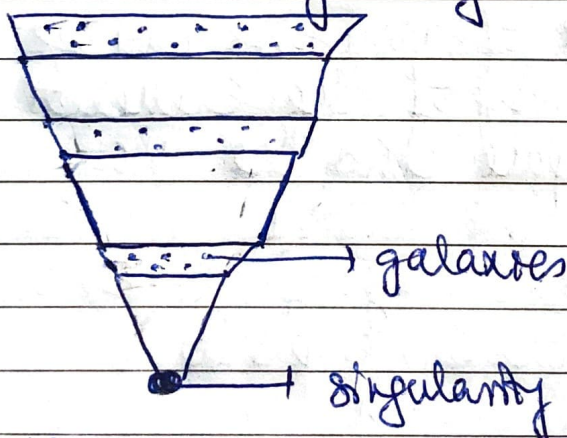 galaxies
singularity